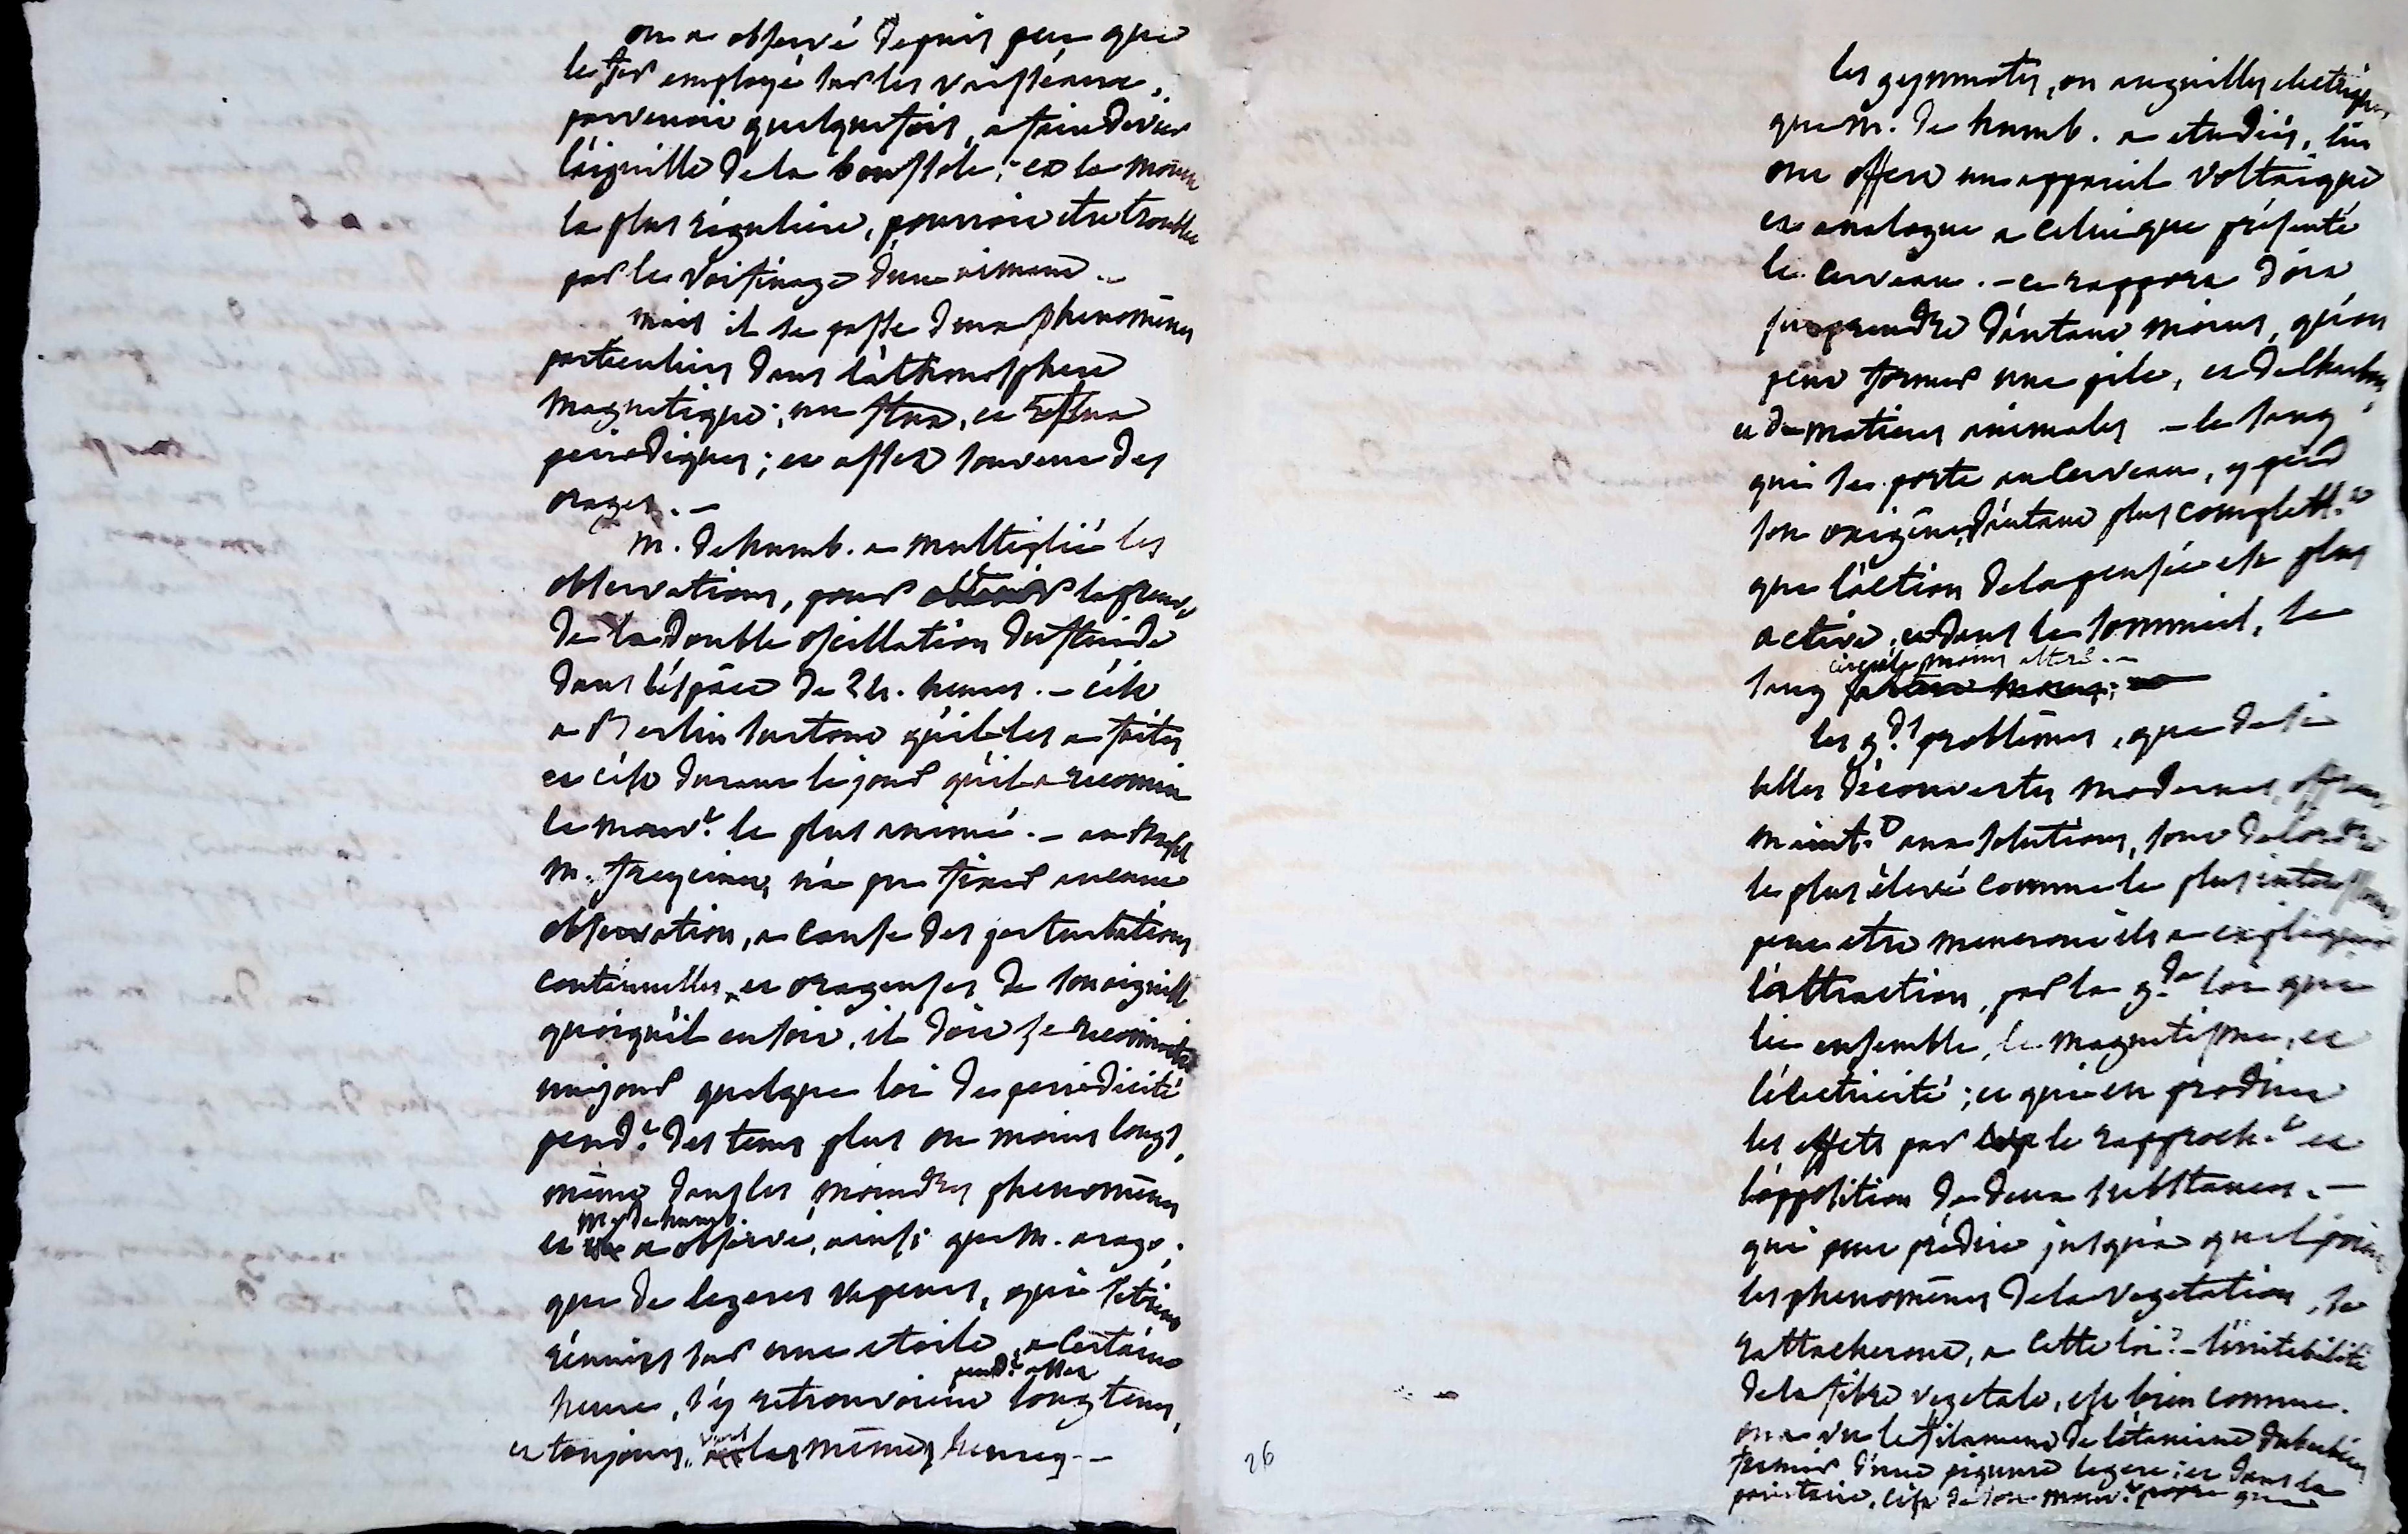 on a observé depuis peu que
le fer employé sur les vaisseaux,
parvenoit quelquefois, a faire devier
l'aiguille de la boussole; et la montre
la plus réguliere, pourroit etre troublée
par le voisinage d'un aimant. –
mais il se passe deux phenomènes
particuliers dans l'athmosphere
magnetique; un flux, et reflux
periodiques; et assez souvent des
orages. –
m. de humb. a multiplié les
observations, pour obtenir la preuve
de la double oscillation du fluide
dans l'éspace de 24. heures. – c'est
a Berlin surtout qu'il les a faites
et c'est durant le jour qu'il a reconnu
le mouvt. le plus animé. – au
m. freycinet, n'a pu fixer aucune
observation, a cause des perturbations
continuelles, et orageuses de son aiguille
quoiqu'il en soit, il doit se reconnoitre
un jour quelque loi de periodicité
pendt. des tems plus ou moins longs,
même dans les moindres phenomènes
et m. de humb. a observé, ainsi que m. arago,
que de legeres vapeurs, qui s'etoient
réunies sur une etoile, a certaine
heure, s'y retrouvoient pendt. assez longtems,
et toujours, vers les mêmes heures. –
les gymnotes, ou anguilles electriques,
que m. de humb. a etudiés, lui
ont offert un appareil voltaique
et analogue a celui que présente
le cerveau. – ce rapport doit
surprendre d'autant moins, qu'on
peut former une pile, et de
et de matieres animales – le sang
qui se porte au cerveau, y perd
son oxigène, d'autant plus complettt.
que l'action de la pensée est plus
active, et dans le sommeil, le
sang circule moins alteré. –
les gds. problêmes, que de si
belles découvertes modernes, offrent
maintt. aux solutions, sont de l'ordre
le plus élevé comme le plus interessant
peut etre meneront ils a expliquer
l'attraction, par la gde. loi qui
lie ensemble, le magnetisme, et
l'électricité; et qui en produit
les effets par le rapprocht. et
l'opposition de deux substances. –
qui peut prédire jusqu'a quel point
les phenomènes de la vegetation, se
rattacheront, a cette loi? – l'irritabilité
de la fibre vegetale, est bien connue.
on a vu le filament de l'étamine du
fremir d'une piquure legere; et dans la
parietaire, c'est de son mouvt. propre que
26